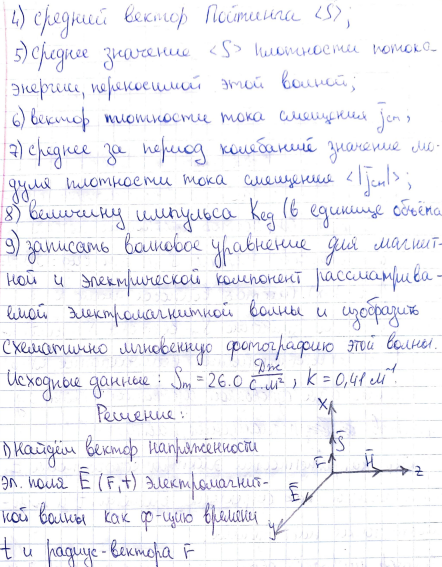 4) средний вектор Пойтинга <S>;
5) среднее значение <S> плотности потока
энергии, переносимой этой волной;
6) вектор плотности тока смещения j̄см;
7) среднее за период колебаний значение мо-
дуля плотности тока смещение <|j̄см|>;
8) величину импульса Kед (в единице объёма
9) записать волновое уравнение для магнит-
ной и электрической компонент рассматрива-
емой электромагнитной волны и изобразить
схематично мгновенную фотографию этой волны.
Исходные данные: Sm = 26.0 Дж/с·м², k = 0,41 м⁻¹.
Решение:
1) Найдём вектор напряжённости
эл. поля Ē (r̄,t) электромагнит-
ной волны как ф-цию времени
t и радиус-вектора r̄
X
S̄
r̄
H̄
z
Ē
y